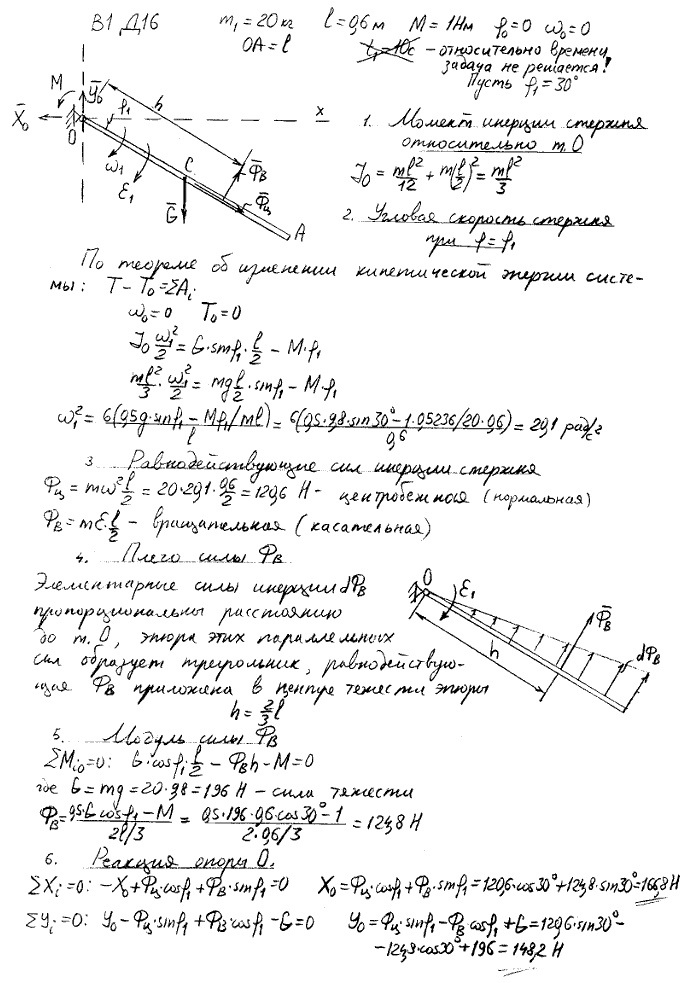 В1 Д16 m₁ = 20 кг l = 0,6 м M = 1 Нм φ₀=0 ω₀=0
OA = l t₁ = 10с – относительно времени
задача не решается!
Пусть φ₁ = 30°
M Ȳ₀ h x
X̄₀ O φ₁
ω₁ ε₁ C Φ̄в
Ḡ Φ̄ц A
1. Момент инерции стержня
относительно т. О
J₀ = ml²/12 + m(l/2)² = ml²/3
2. Угловая скорость стержня
при φ = φ₁
По теореме об изменении кинетической энергии систе-
мы: T – T₀ = ΣAᵢ
ω₀ = 0 T₀ = 0
J₀ ω₁²/2 = G·sinφ₁·l/2 – M·φ₁
ml²/3 · ω₁²/2 = mgl/2·sinφ₁ – M·φ₁
ω₁² = 6(0,5g·sinφ₁ – Mφ₁/ml)/l = 6(0,5·9,8·sin30° – 1·0,5236/20·0,6)/0,6 = 20,1 рад/с
3 Равнодействующие сил инерции стержня
Φц = mω² l/2 = 20·20,1·0,6/2 = 120,6 Н – центробежная (нормальная)
Φв = mε·l/2 – вращательная (касательная)
4. Плечо силы Φв
Элементарные силы инерции dΦв
пропорциональны расстоянию
до т. О, эпюра этих параллельных
сил образует треугольник, равнодействую-
щая Φв приложена в центре тяжести эпюры
h = 2/3 l
O ε₁ Φ̄в
h dΦв
5. Модуль силы Φв
ΣMᵢ₀=0: G·cosφ₁·l/2 – Φвh – M = 0
где G = mg = 20·9,8 = 196 Н – сила тяжести
Φв = 0,5·G cosφ₁ – M / 2l/3 = 0,5·196·0,6·cos30° – 1 / 2·0,6/3 = 124,8 Н
6. Реакция опоры О.
ΣXᵢ = 0: –X₀ + Φц·cosφ₁ + Φв·sinφ₁ = 0 X₀ = Φц·cosφ₁ + Φв·sinφ₁ = 120,6·cos30° + 124,8·sin30° = 166,8 Н
ΣYᵢ = 0: Y₀ – Φц·sinφ₁ + Φв·cosφ₁ – G = 0 Y₀ = Φц·sinφ₁ – Φв cosφ₁ + G = 120,6·sin30° –
– 124,3·cos30° + 196 = 148,2 Н